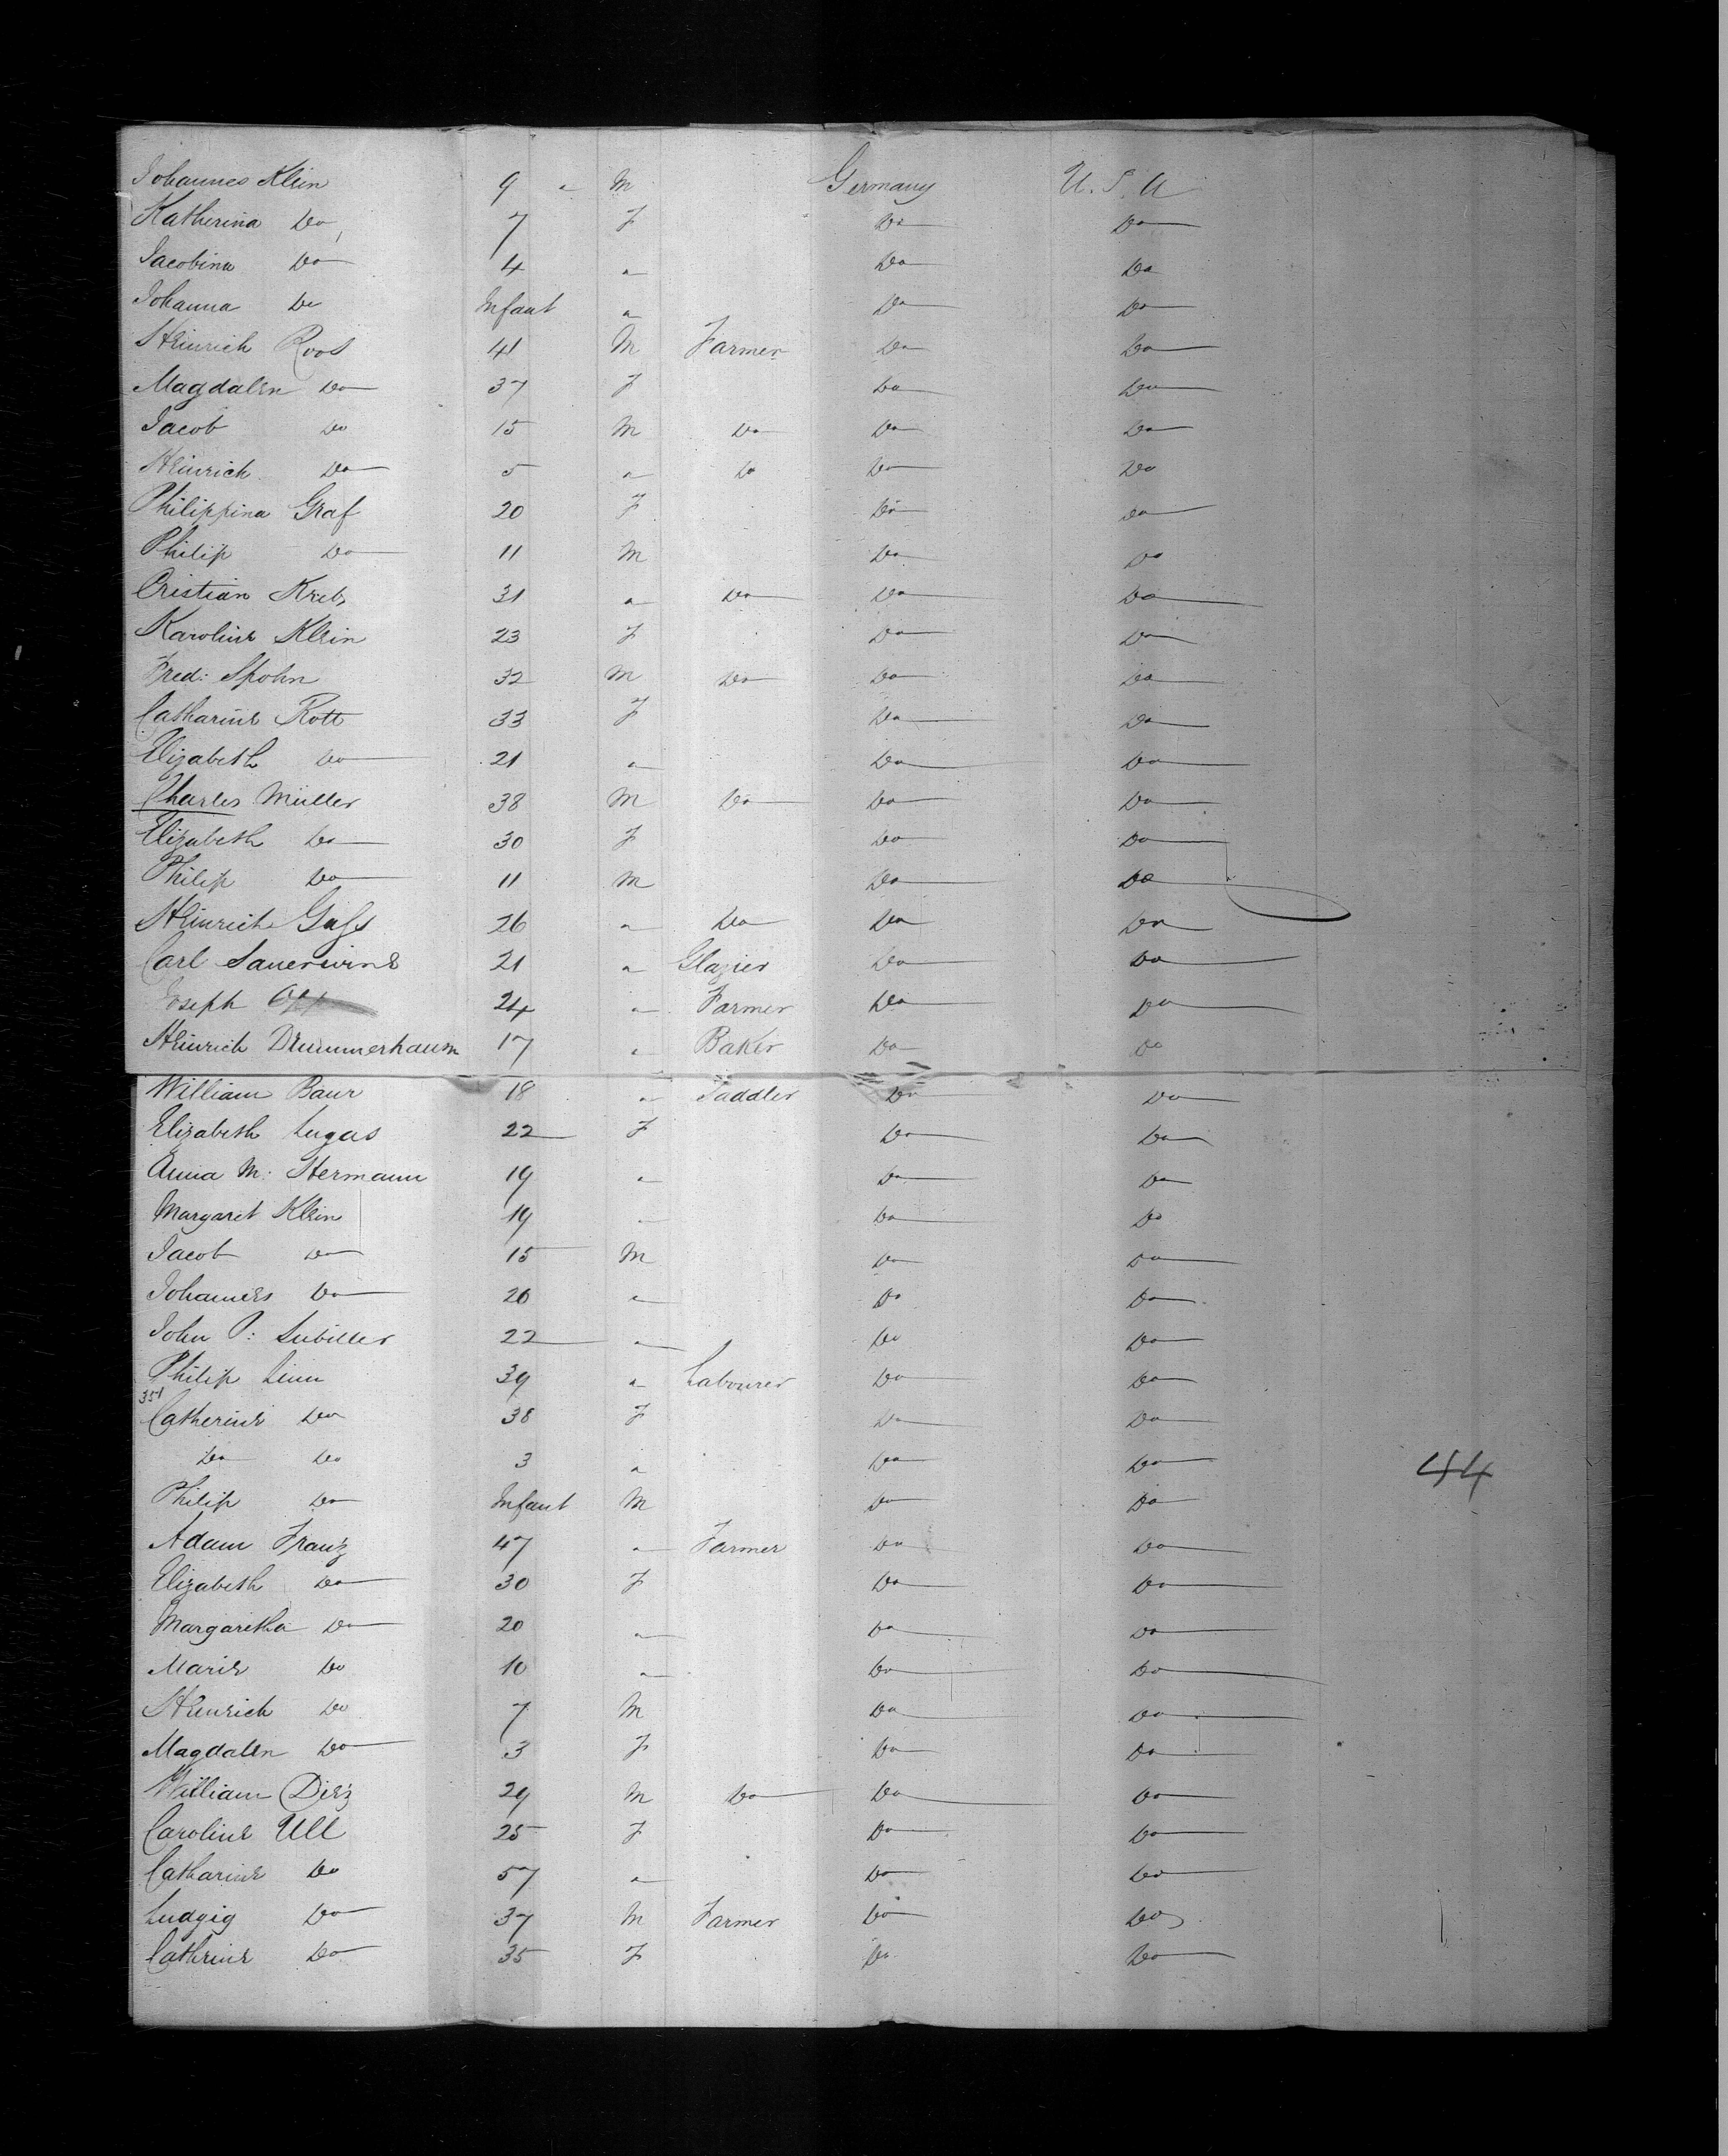 Johannes Klein 9 " M Germany U.S.A
Katherina Do 7 F Do Do
Jacobina Do 4 " Do Do
Johanna Do Infant " Do Do
Heinrich Roos 41 M Farmer Do Do
Magdalen Do 37 F Do Do
Jacob Do 15 M Do Do Do
Heinrich Do 5 " Do Do Do
Philippina Graf 20 F Do Do
Philip Do 11 M Do Do
Cristian Kreb 31 " Do Do Do
Karoline Klein 23 F Do Do
Fred: Spohn 32 M Do Do Do
Catharine Rott 33 F Do Do
Elizabeth Do 21 " Do Do
Charles Müller 38 M Do Do Do
Elizabeth Do 30 F Do Do
Philip Do 11 M Do Do
Heinrich 26 " Do Do Do
Carl Sauerwine 21 " Glazier Do Do
Joseph Opp 24 " Farmer Do Do
Heinrich Drummerhaum 17 " Baker Do Do
William Baur 18 " Saddler Do Do
Elizabeth Lugas 22 F Do Do
Anna M: Hermann 19 " Do Do
Margaret Klein 19 " Do Do
Jacob Do 15 M Do Do
Johannes Do 20 " Do Do
John P: Lubiller 22 " Do Do
Philip Linn 39 " Labourer Do Do
351
Catherine Do 38 F Do Do
Do Do 3 " Do Do
44
Philip Do Infant M Do Do
Adam Franz 47 " Farmer Do Do
Elizabeth Do 30 F Do Do
Margaretha Do 20 " Do Do
Marie Do 10 " Do Do
Heinrich Do 7 M Do Do
Magdalen Do 3 F Do Do
William Diez 29 M Do Do Do
Caroline Ull 25 F Do Do
Catharine Do 57 " Do Do
Ludgig Do 37 M Farmer Do Do
Cathrine Do 35 F Do Do